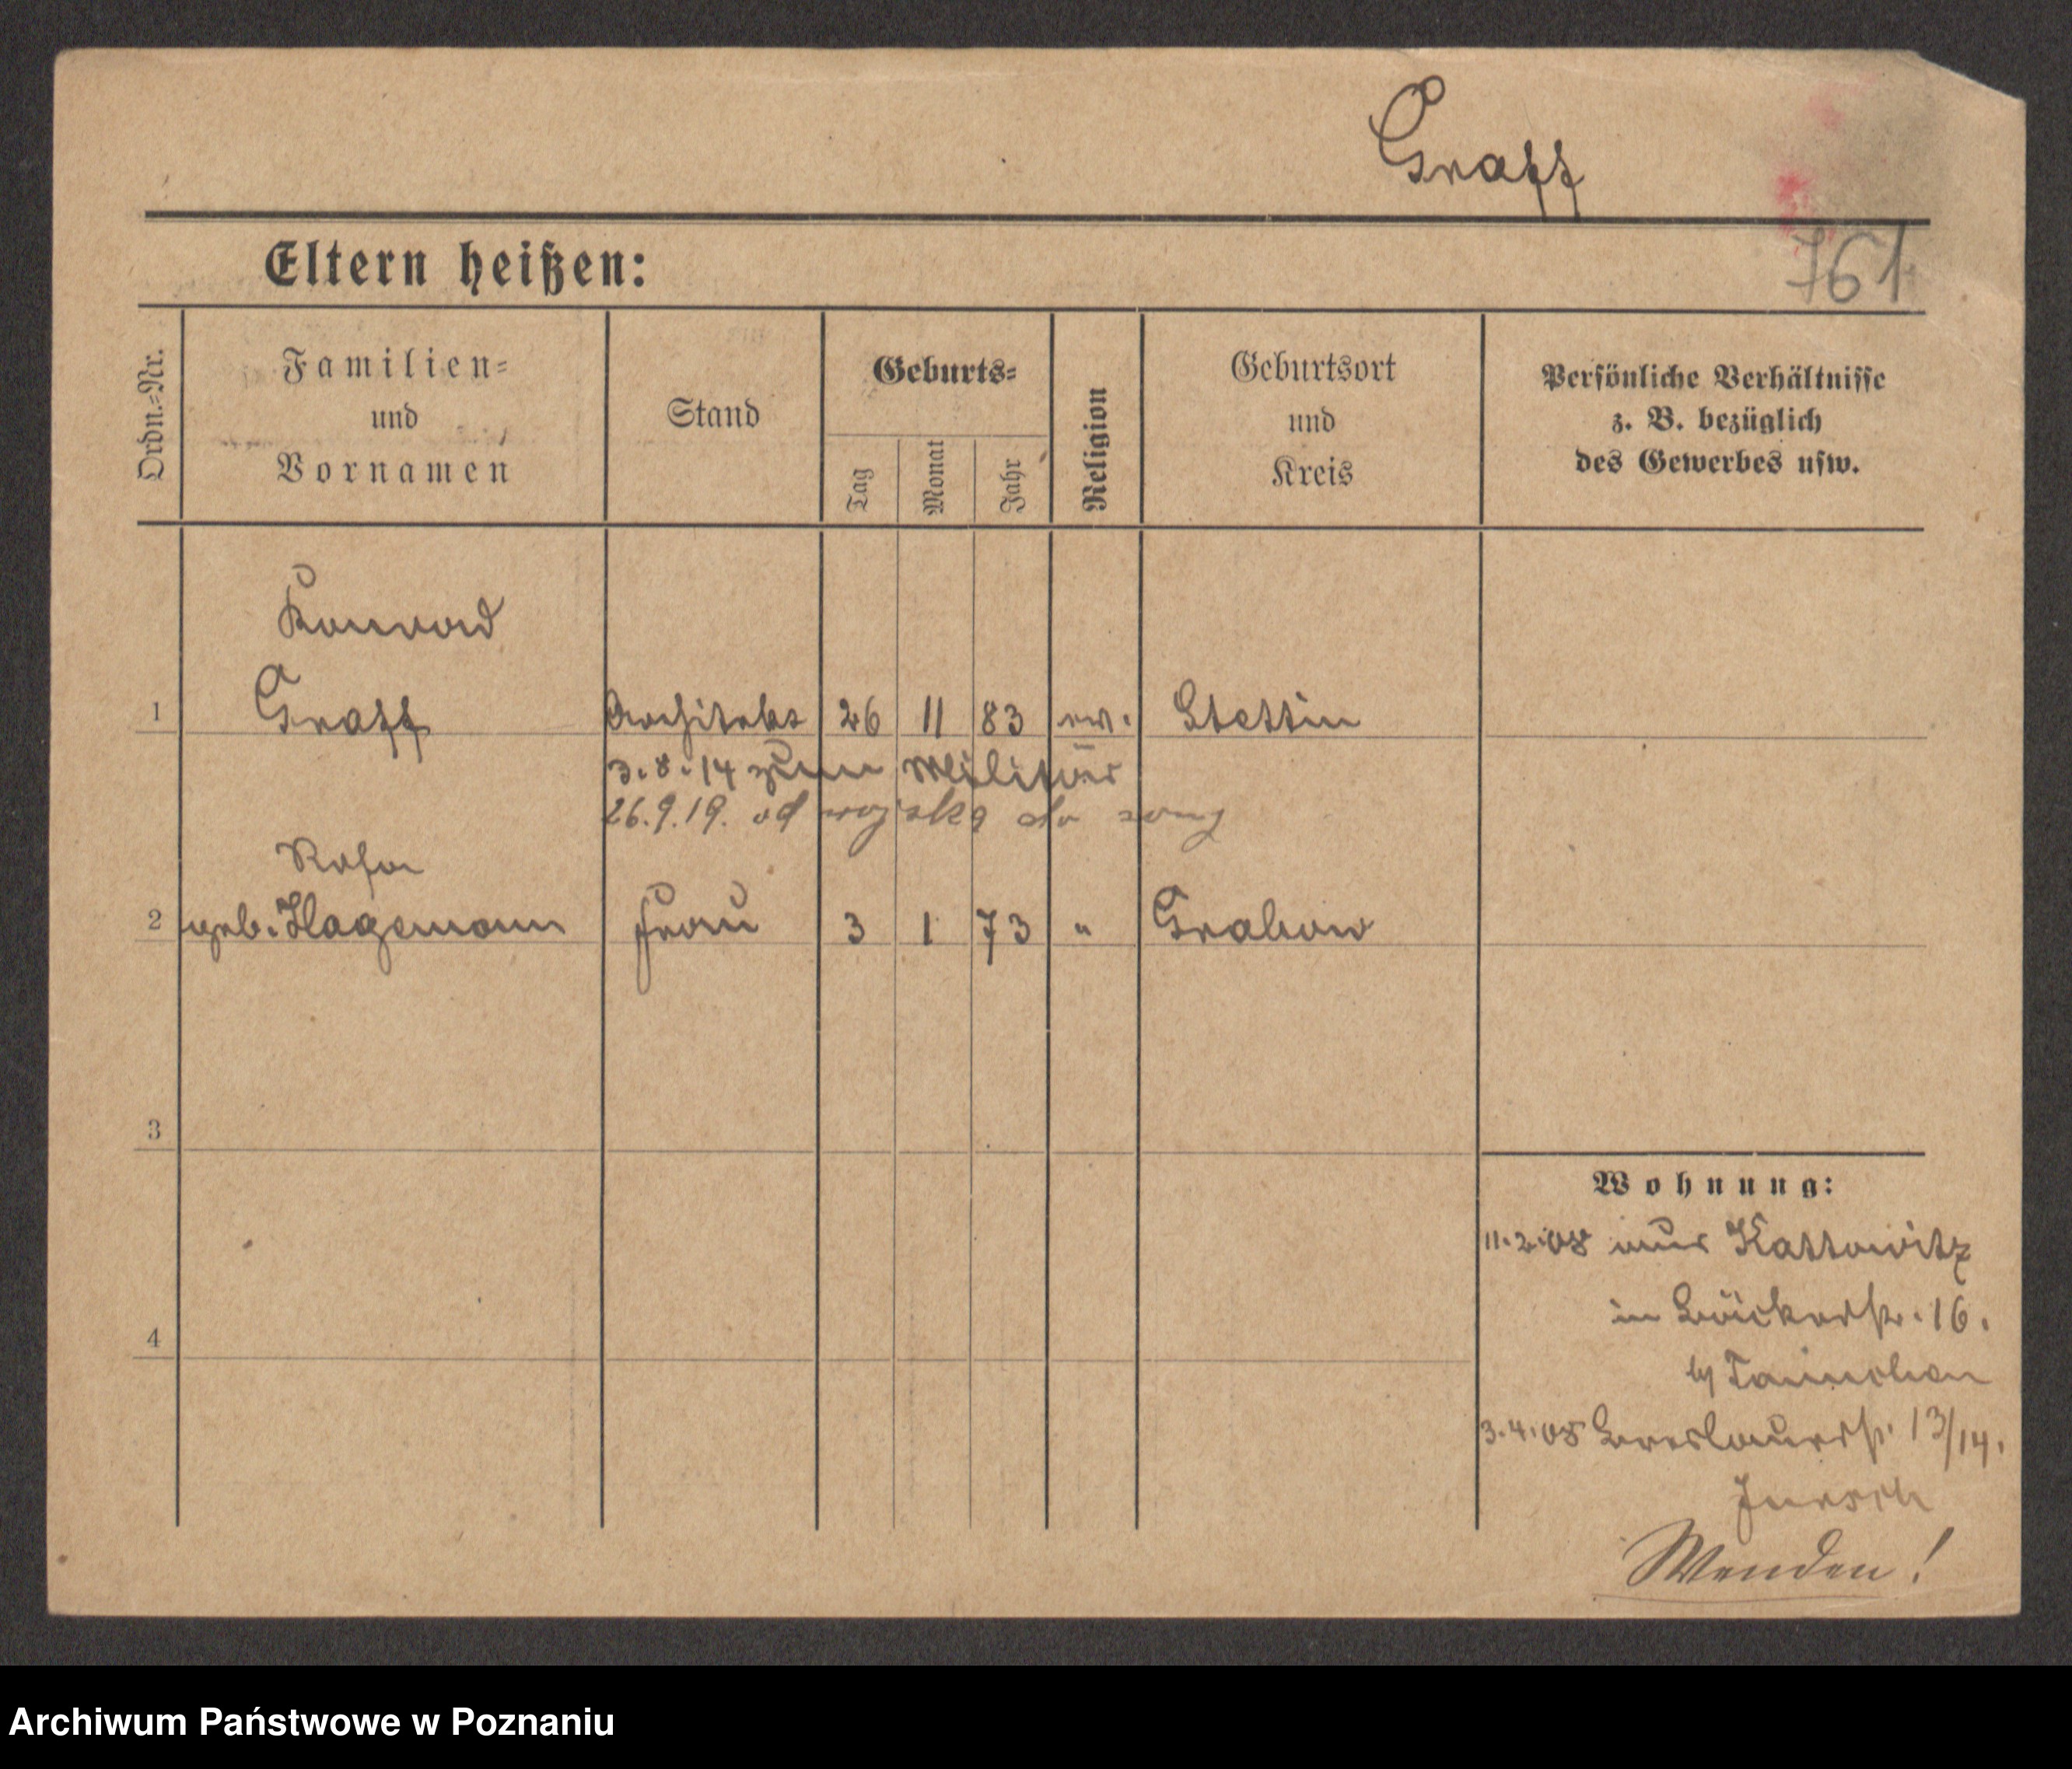 Graff
Eltern heißen:
761
Ordn.=Nr.
Familien=
und
Vornamen
Stand
Geburts=
Tag
Monat
Jahr
Religion
Geburtsort
und
Kreis
Persönliche Verhältnisse
z. B. bezüglich
des Gewerbes usw.
Konrad
1 Graff Architekt 26 11 83 ev. Stettin
3.8.14 zum Militär
26.9.19. od wojska do
Rosa
2 geb. Hagemann Frau 3 1 73 " Grabow
3
4
Wohnung:
11.2.08 aus Kattowitz
in Bäckerstr. 16.
3.4.08 Breslauerstr. 13/14.
Wenden!
Archiwum Państwowe w Poznaniu